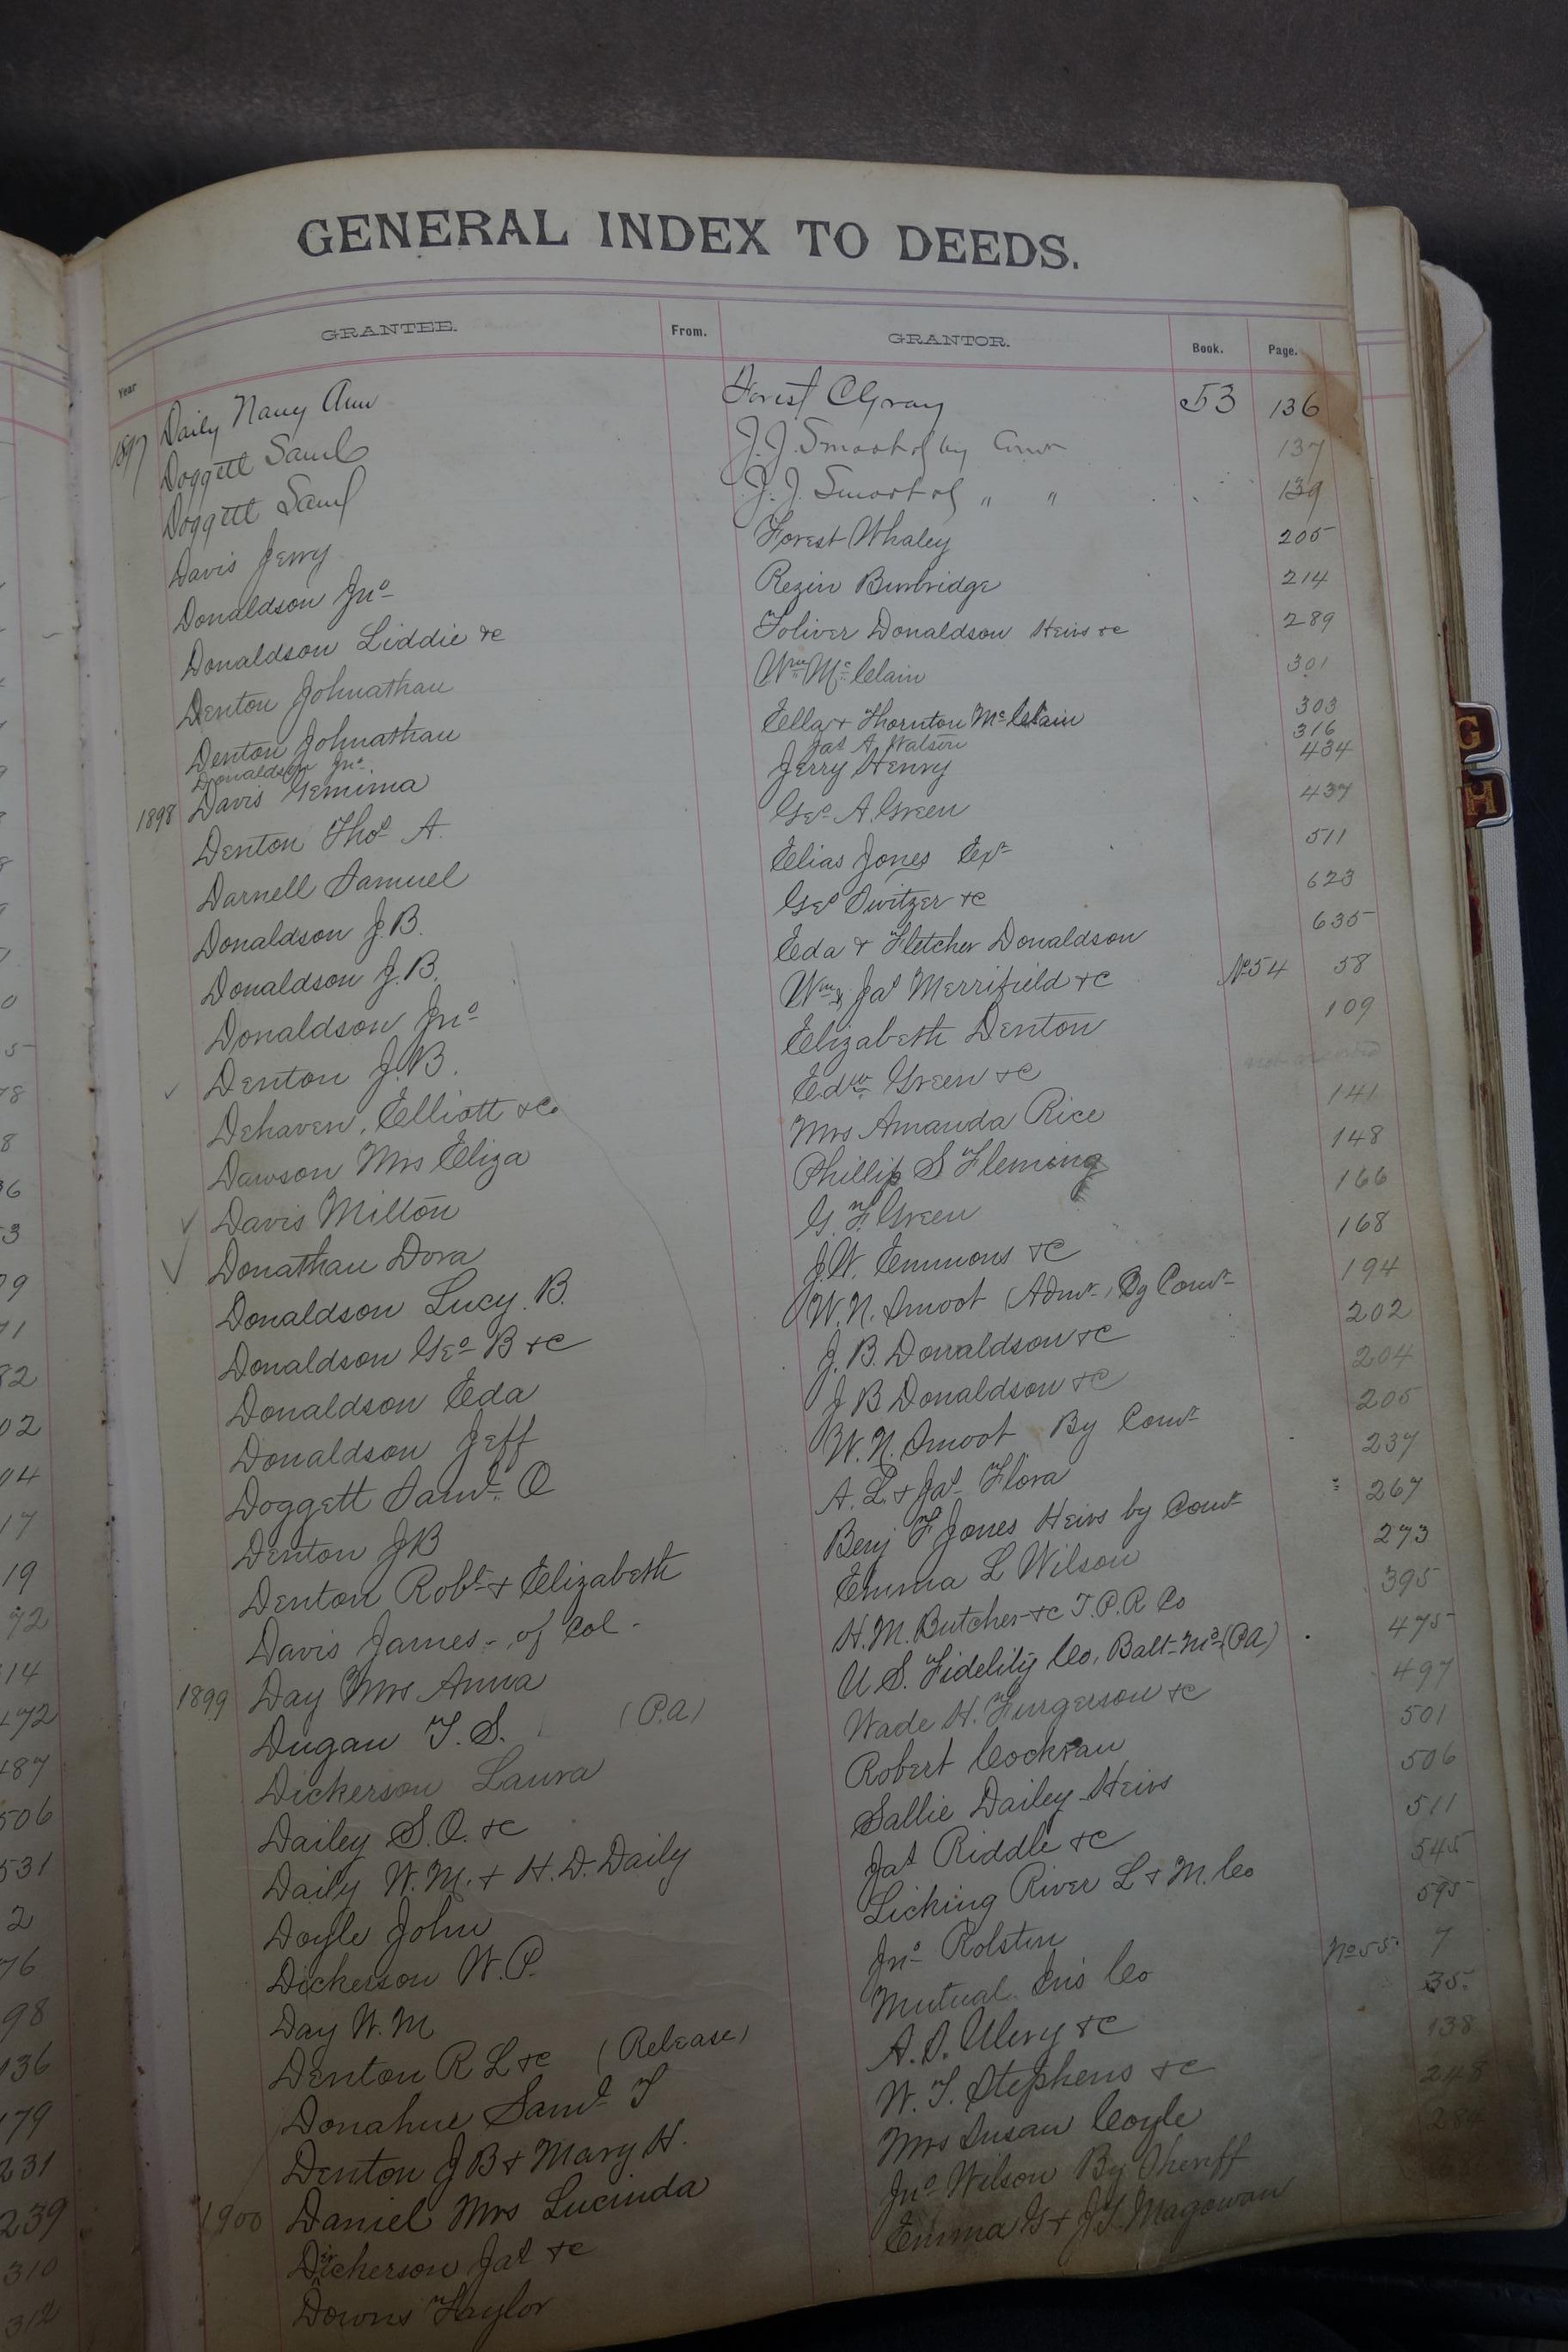 GENERAL INDEX TO DEEDS.
Year GRANTEE. From. GRANTOR. Book. Page.
1897 Daily Nancy Ann Forest C Gray 53 136
Doggett Saml J.J. Smoot by Comr 137
Doggett Saml J.J. Smoot " " 139
Davis Jerry Forest Whaley 205
Donaldson Jno Rezin Burbridge 214
Donaldson Liddie &c Toliver Donaldson Heirs &c 289
Denton Johnathan Wm McClain 301
Denton Johnathan Ella & Thornton McClain 303
Donaldson Jno Jas A Watson 316
1898 Davis Gemima Jerry Henry 434
Denton Thos A. Geo A. Green 437
Darnell Samuel Elias Jones Exr 511
Donaldson J.B. Geo Switzer &c 623
Donaldson J.B. Eda & Fletcher Donaldson 635
Donaldson Jno Wm & Jas Merrifield &c No 54 58
Denton J.B. Elizabeth Denton 109
Dehaven, Elliott &c. Edw Green &c not recorded
Dawson Mrs Eliza Mrs Amanda Rice 141
Davis Milton Phillip S Fleming 148
Donathan Dora G. F. Green 166
Donaldson Lucy. B. J.W. Emmons &c 168
Donaldson Geo B &c W.N. Smoot (Admr, By Comr 194
Donaldson Eda J. B. Donaldson &c 202
Donaldson Jeff J B Donaldson &c 204
Doggett Saml O W.N. Smoot By Comr 205
Denton JB A. L. & Jas Flora 237
Denton Robt & Elizabeth Benj F Jones Heirs by Comr 267
Davis James - of Col - Emma L Wilson 273
1899 Day Mrs Anna H.M. Butcher &c T.P.R Co 395
Dugan T. S. (P.A) U S. Fidelity Co, Balt-Md (P.A) 475
Dickerson Laura Wade H. Furgerson &c 497
Dailey S.O. &c Robert Cockran 501
Daily W.M. & H.D. Daily Sallie Dailey Heirs 506
Doyle John Jas Riddle &c 511
Dickerson W.P. Licking River L & M. Co 545
Day W.M Jno Rolsten 595
Denton R L &c (Release) Mutual Ins Co No 55 7
Donahue Saml T A.S. Ulery &c 35
Denton J B & Mary H. W. T. Stephens &c 138
1900 Daniel Mrs Lucinda Mrs Susan Coyle 248
Dickerson Jas &c Jno Wilson By Sheriff
Downs Taylor Emma G & J.T. Magowan